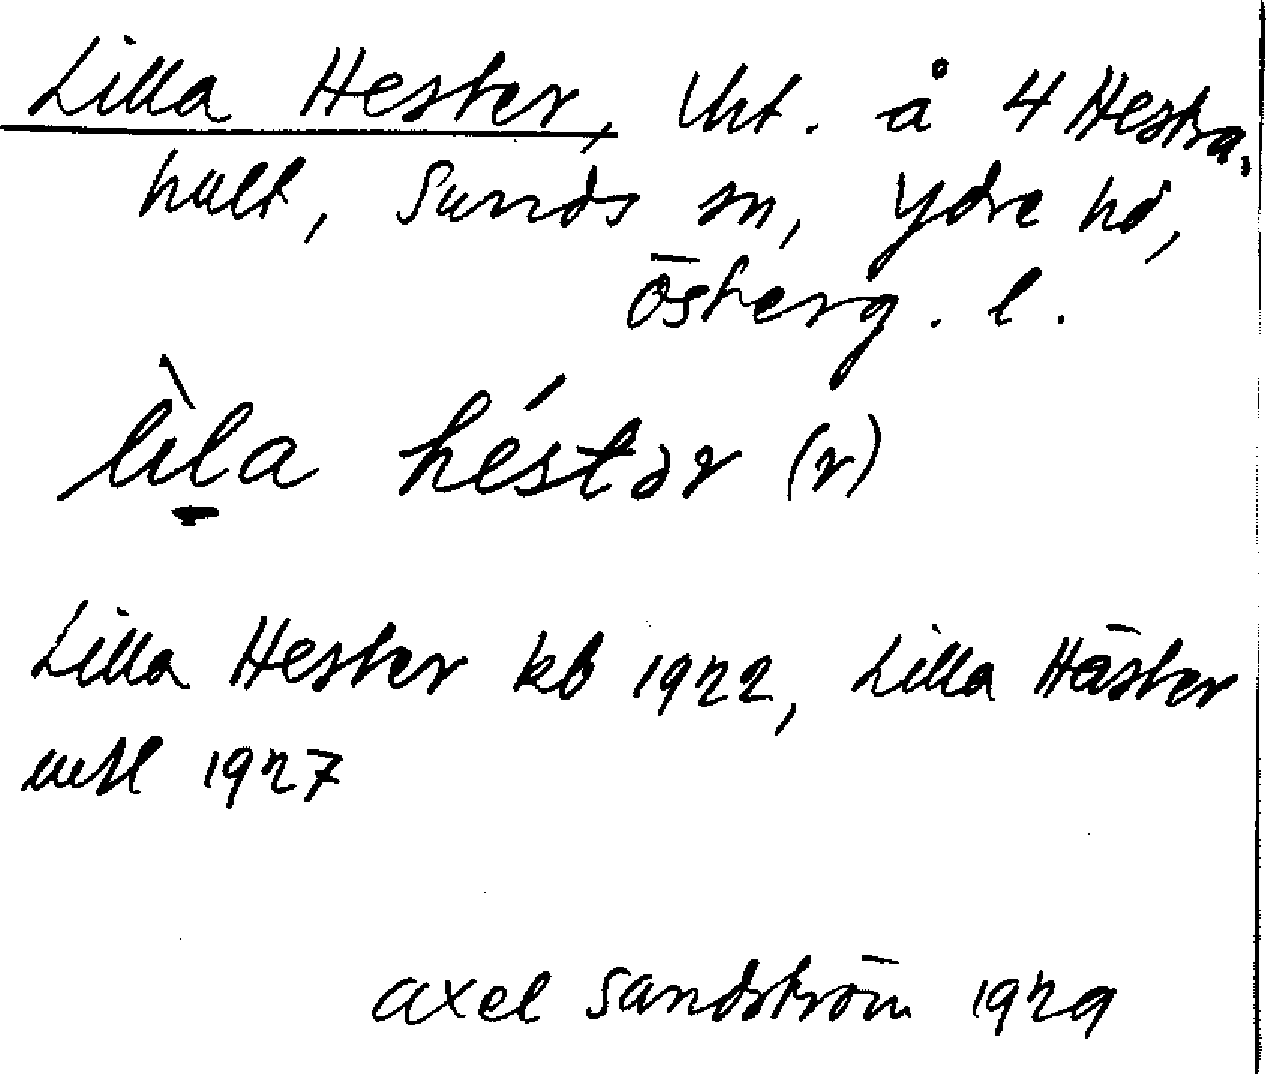 Lilla Hester, lht. å 4 Hestra,
hult, Sunds sn, Ydre hd,
Österg. l.
lìla héstər (r)
Lilla Hester kb 1922, Lilla Häster
1927
Axel Sandström 1929